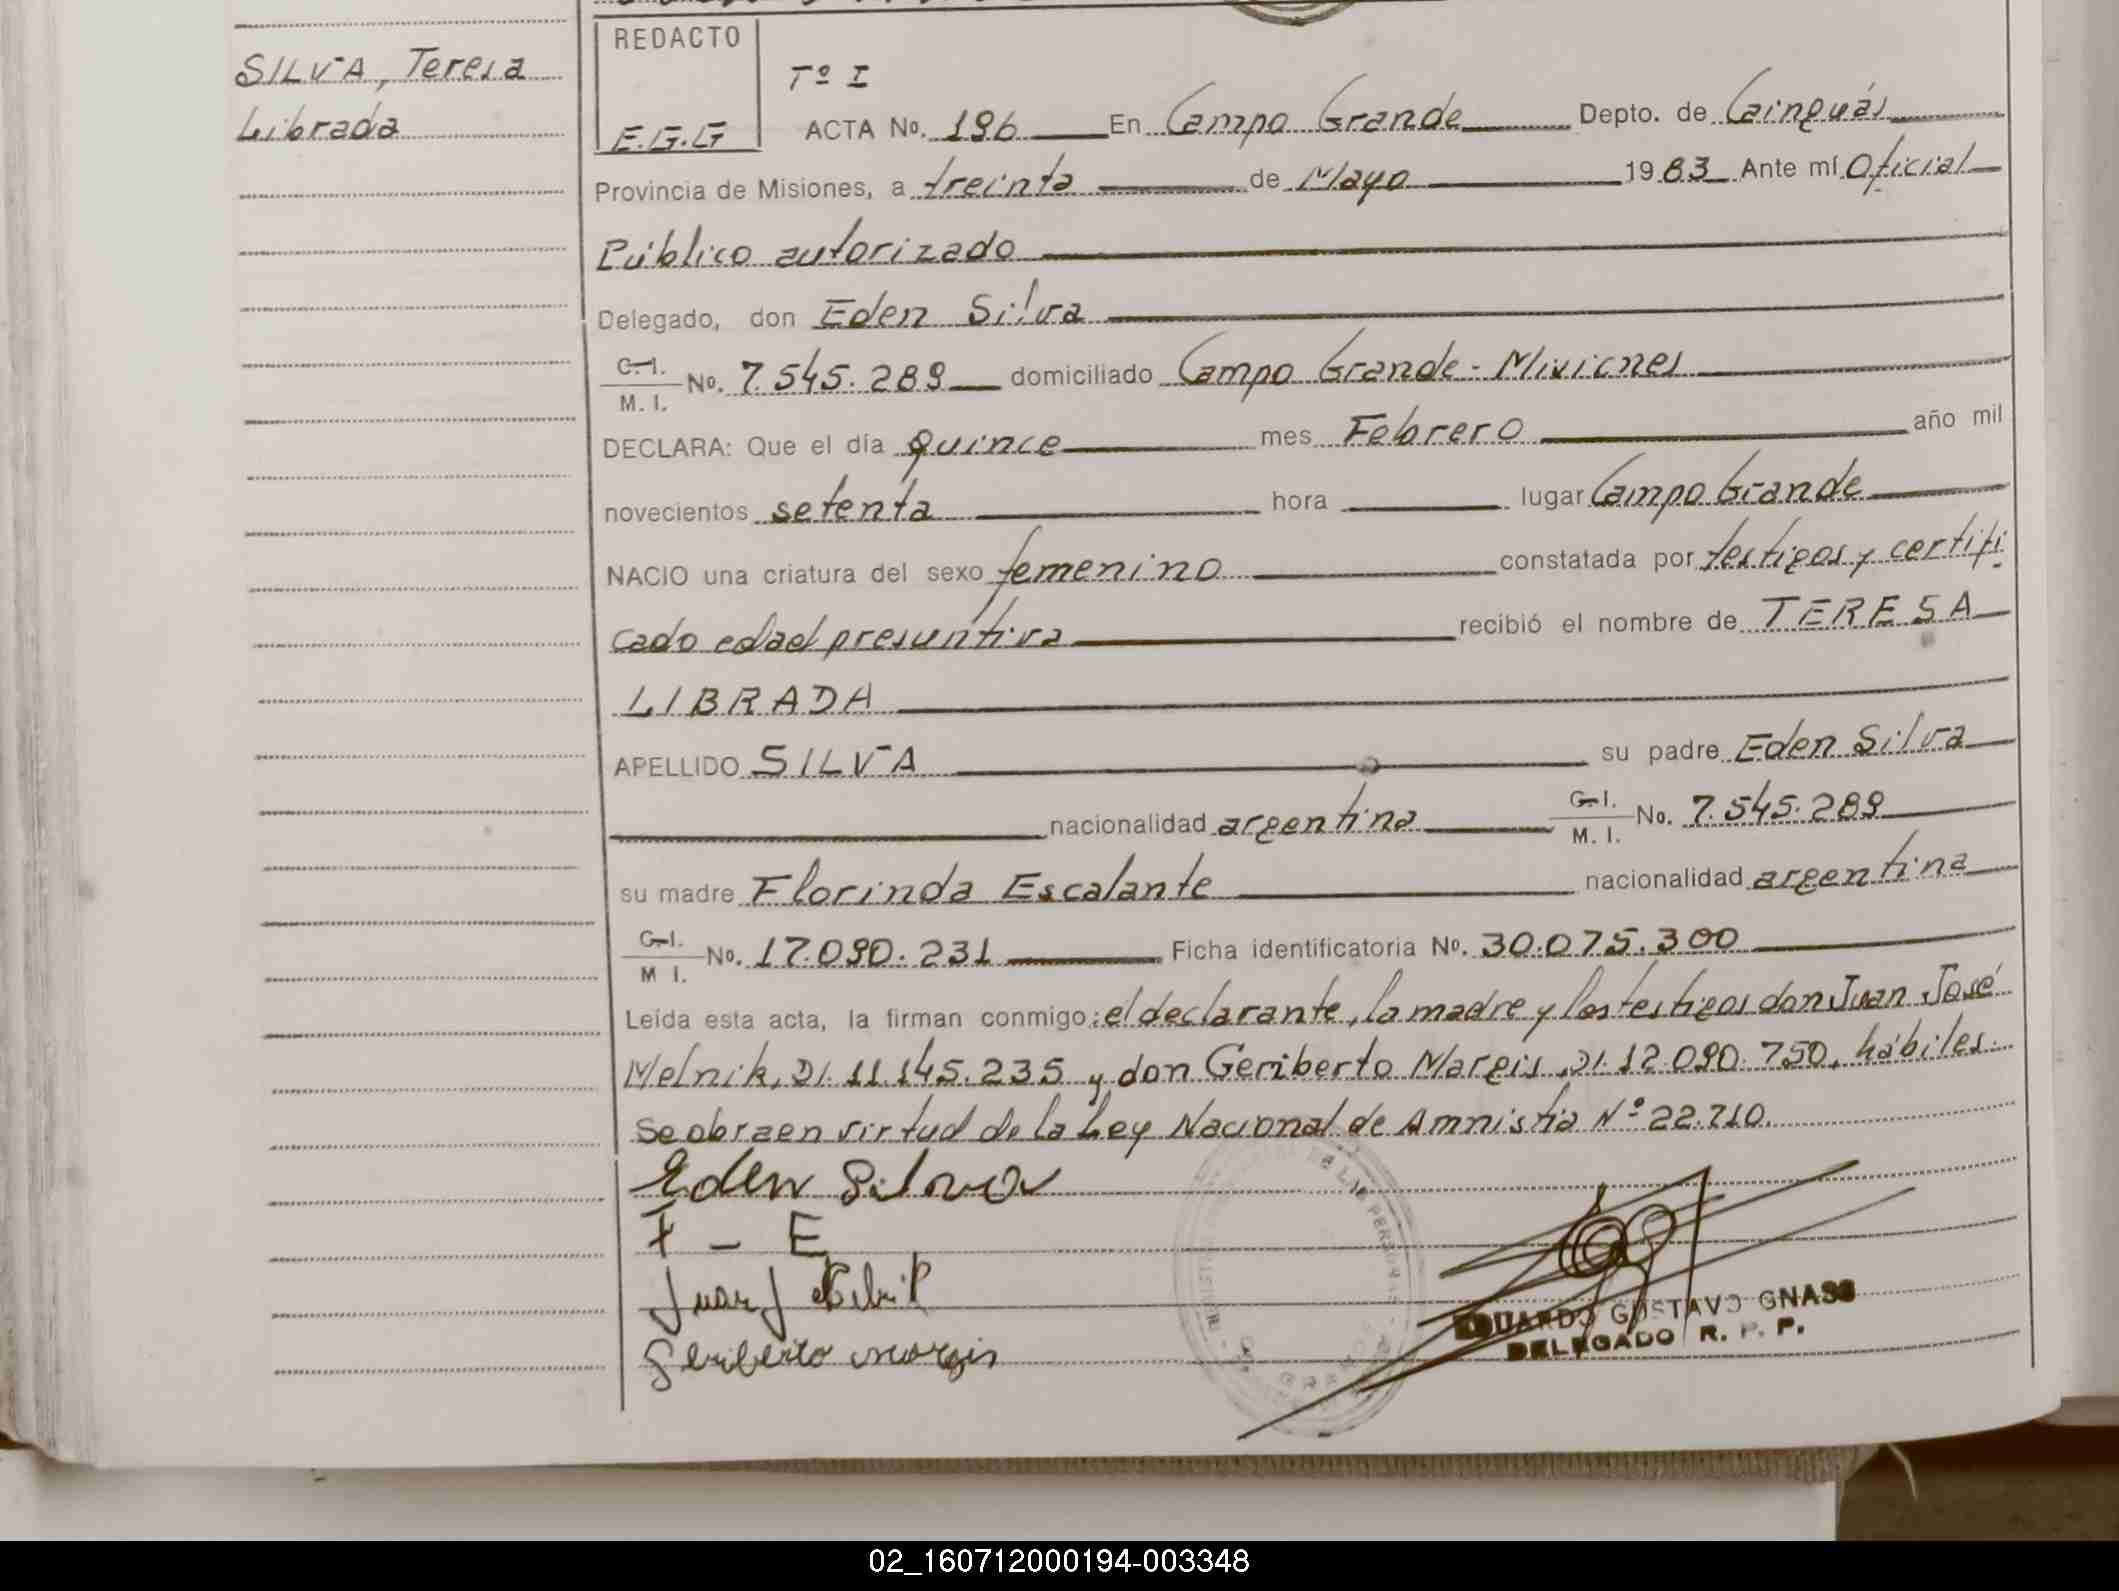 SILVA, Teresa
Librada
REDACTO
E.G.G
Tº I
ACTA No. 196 En Campo Grande Depto. de Cainguás
Provincia de Misiones, a treinta de Mayo 1983 Ante mí Oficial
Público autorizado
Delegado, don Eden Silva
C.I. M. I. No. 7.545.289 domiciliado Campo Grande - Misiones
DECLARA: Que el día quince mes Febrero año mil
novecientos setenta hora lugar Campo Grande
NACIO una criatura del sexo femenino constatada por testigos y certifi
cado edad presuntiva recibió el nombre de TERESA
LIBRADA
APELLIDO SILVA su padre Eden Silva
nacionalidad argentina C.I. M. I. No. 7.545.289
su madre Florinda Escalante nacionalidad argentina
C.I. M I. No. 17.090.231 Ficha identificatoria No. 30.075.300
Leída esta acta, la firman conmigo: el declarante, la madre y los testigos don Juan José
Melnik, DI. 11.145.235 y don Geriberto Margis, DI. 12.090.750, hábiles.
Se obra en virtud de la Ley Nacional de Amnistia Nº 22.710.
Eden Silva
F - E
Juan J
Geriberto Margis
DE LAS PERSONAS
EDUARDO GUSTAVO GNASS
DELEGADO R. P. P.
02_160712000194-003348